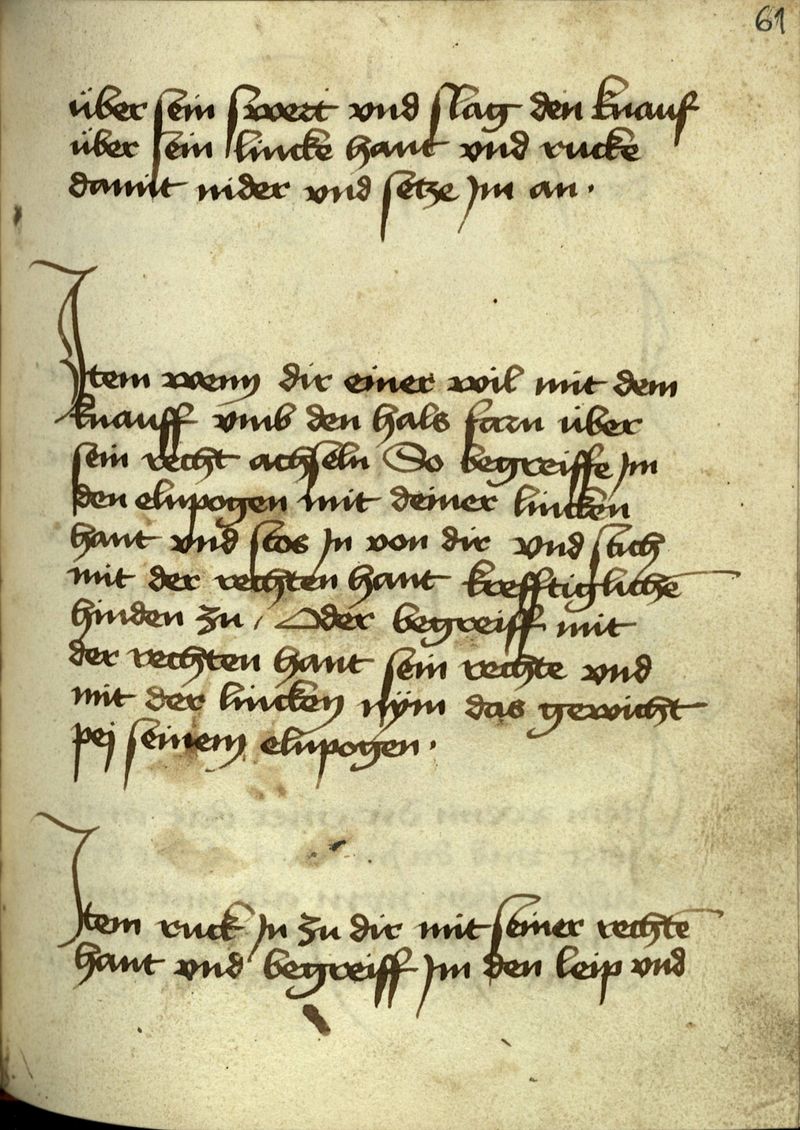 61
über sein swert vnd slag den knauf
über sein lincke hant vnd rucke
damit nider vnd setze Jm an ·
Jtem wenn dir einer wil mit dem
knauff vmb den hals farn über
sein recht achseln So begreiffe Jm
den elnpogen mit deiner lincken
hant vnd stos Jn von dir vnd stich
mit der rechten hant krefftiglichē
hinden zu / Oder begreiff mit
der rechten hant sein rechte vnd
mit der lincken nÿm das gewicht
pej seinem elnpogen ·
Jtem ruck Jn zu dir mit seiner rechtē
hant vnd begreiff Jm den leip vnd